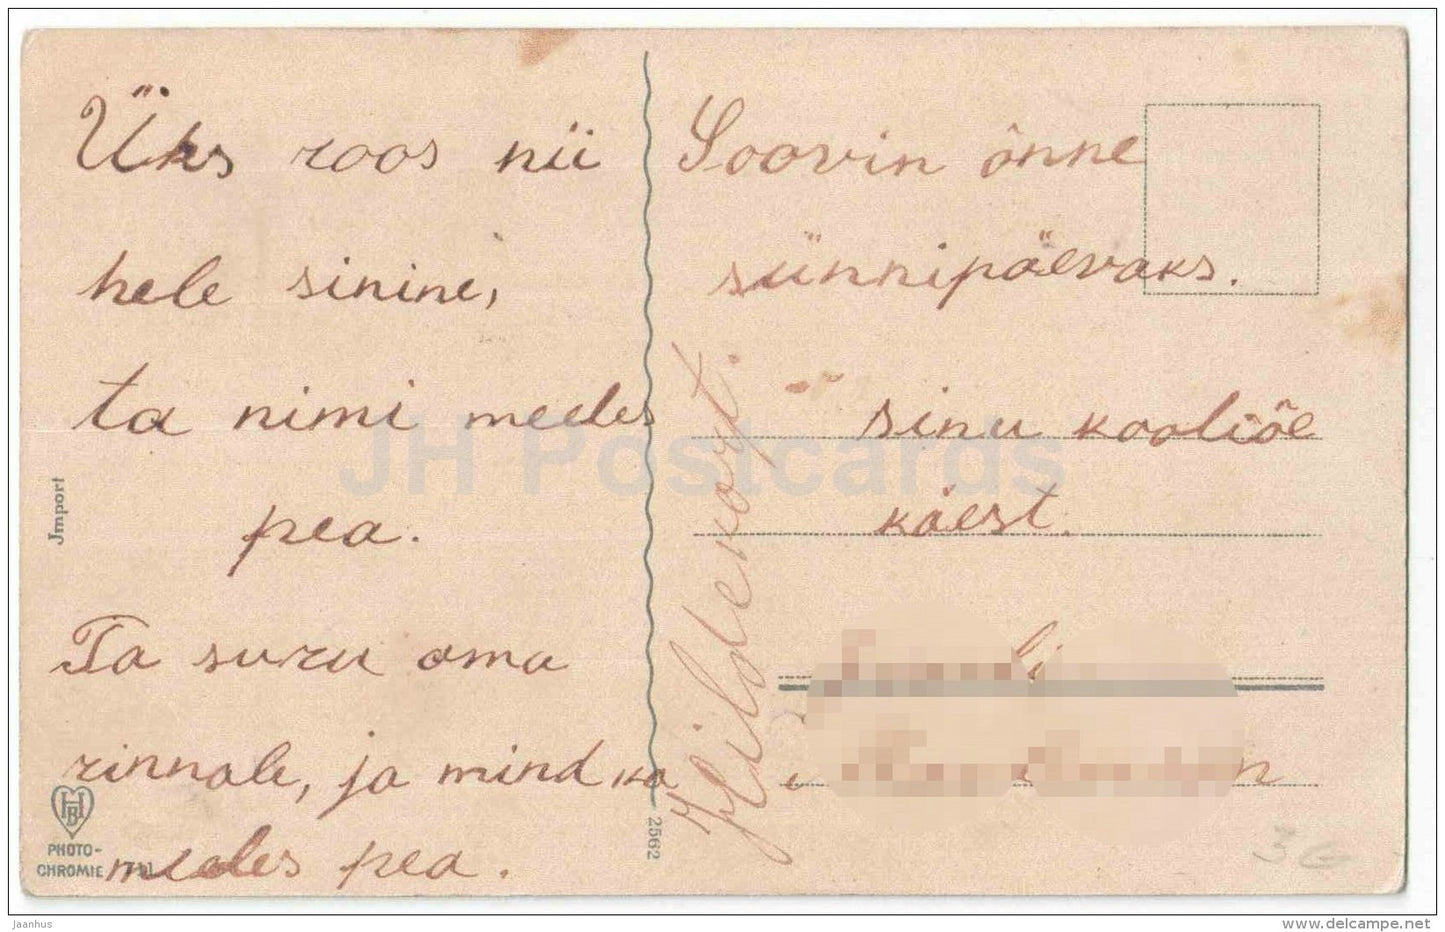 Üks roos nii
hele sinine,
ta nimi meeles
pea.
Ta suru oma
rinnale, ja mind ka
meeles pea.
Soovin õnne
sünnipäevaks.
sinu kooliõe
käest.
Hildekort.
Jmport
HB
PHOTO-
CHROMIE
2562
3G
JH Postcards
jaanhus
www.delcampe.net